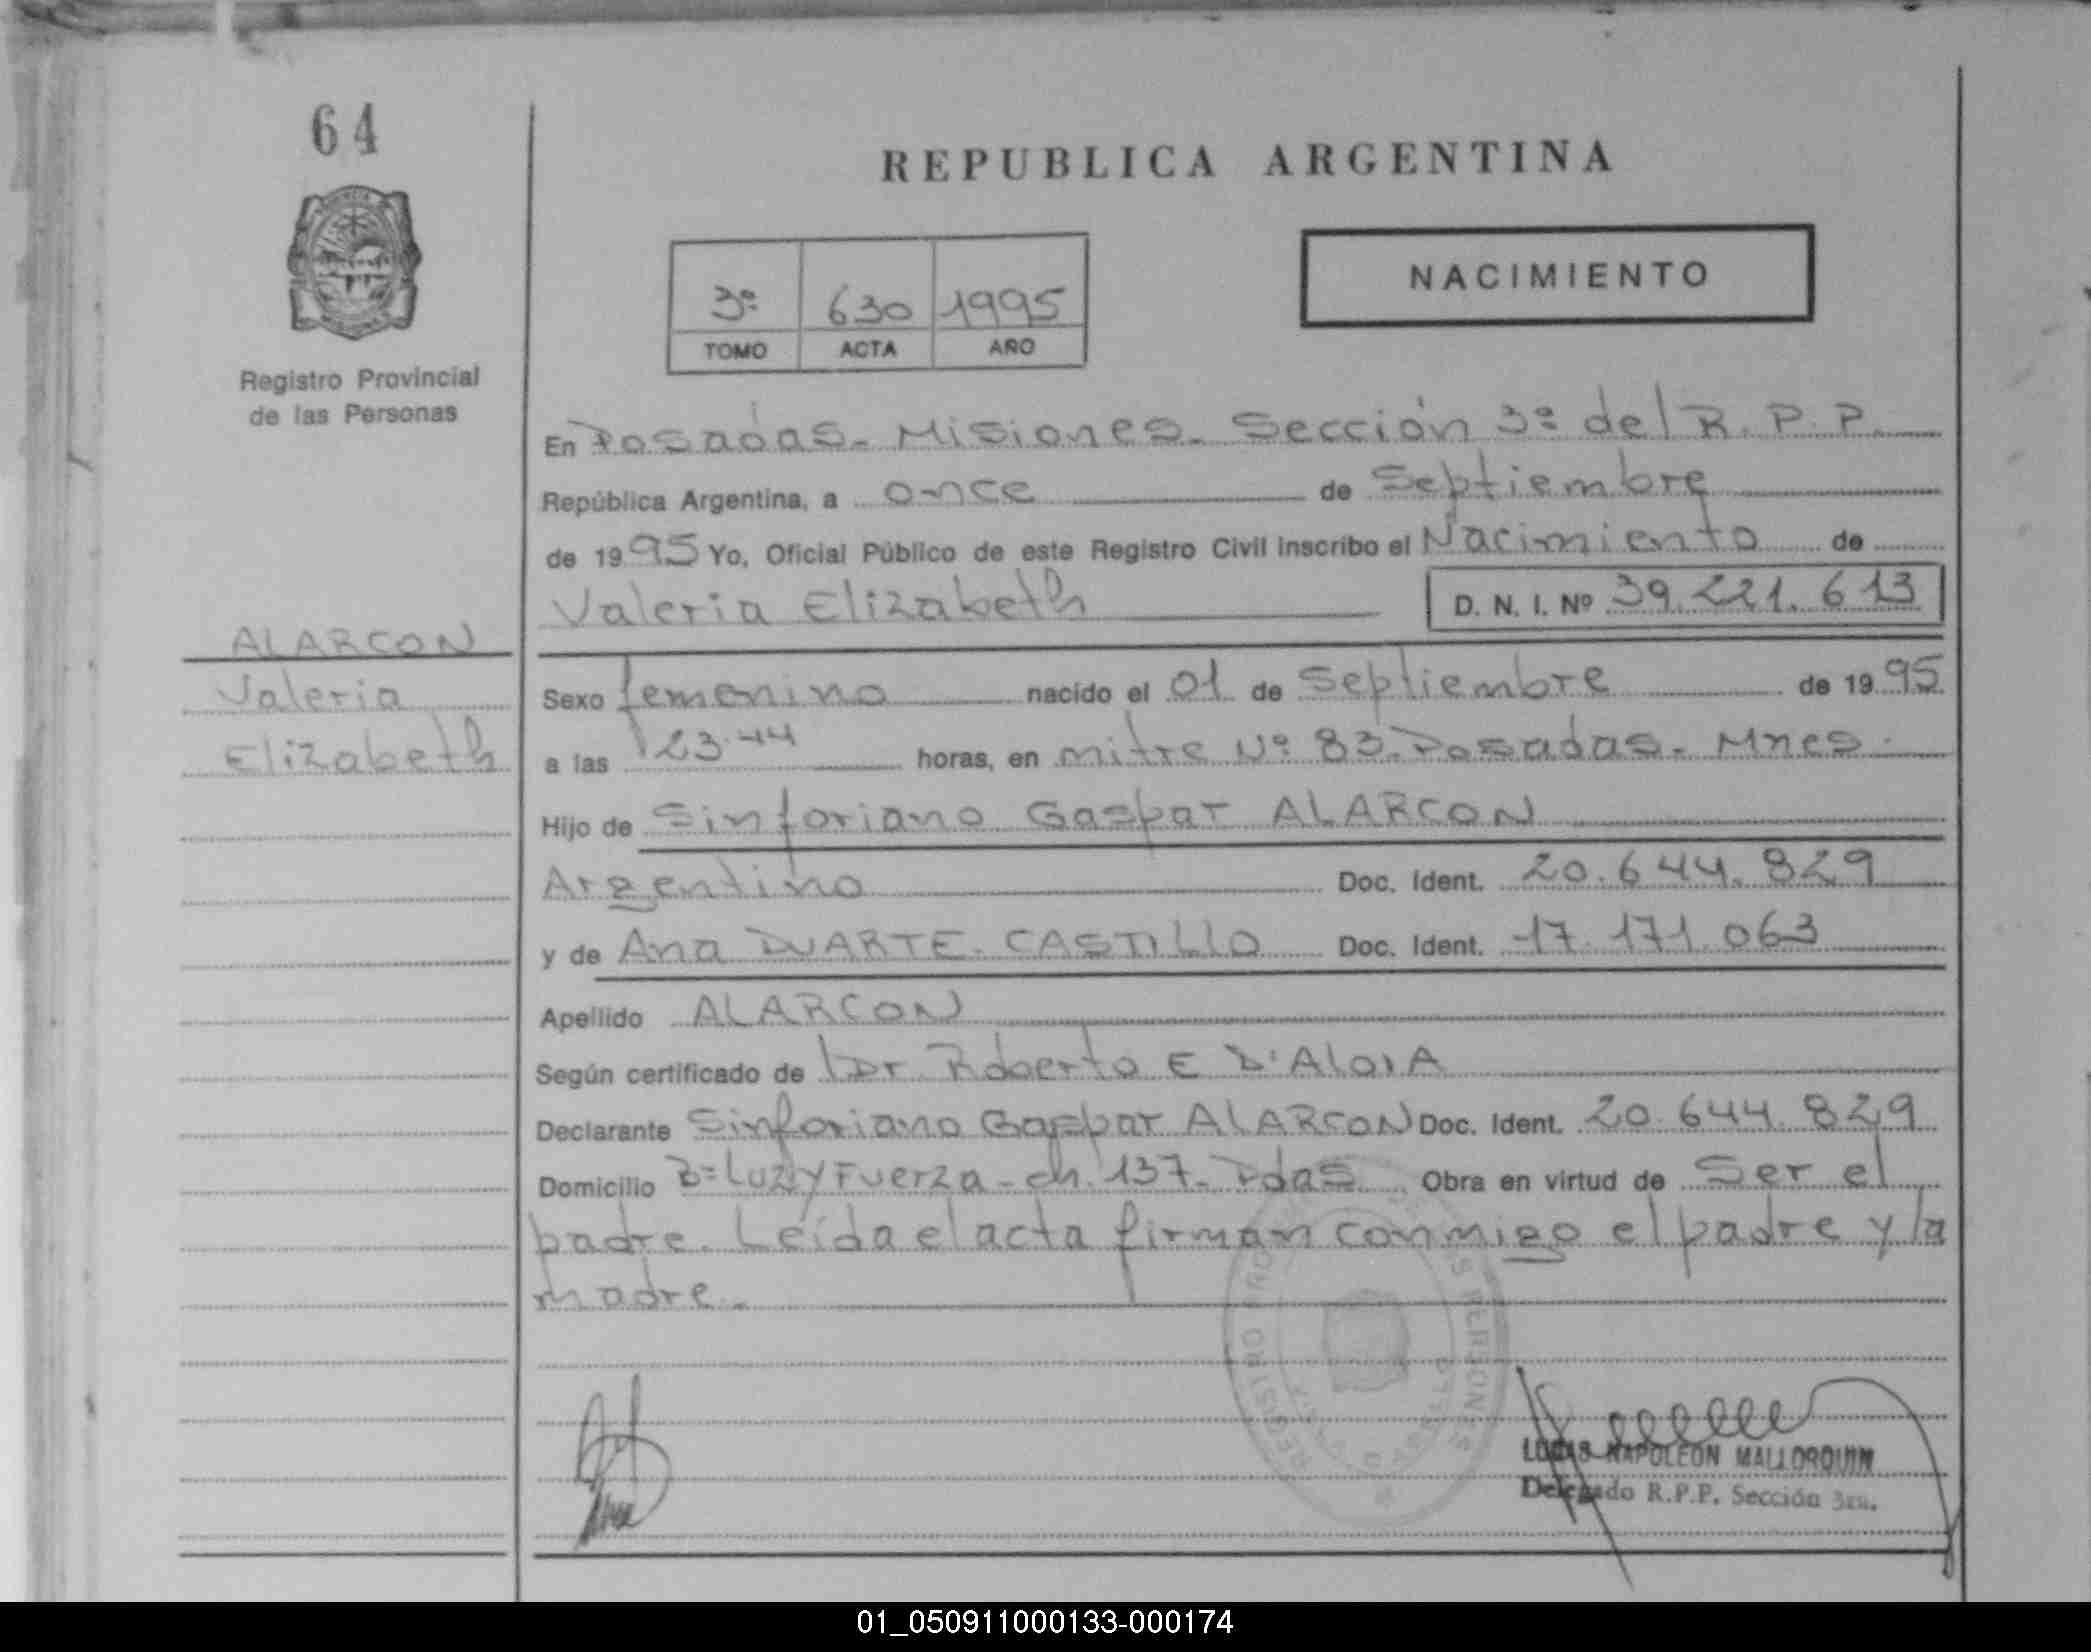 64
REPUBLICA ARGENTINA
NACIMIENTO
3º 630 1995
TOMO ACTA AÑO
Registro Provincial
de las Personas
En Posadas - Misiones - Sección 3º del R. P. P.
República Argentina, a once de Septiembre
de 1995 Yo, Oficial Público de este Registro Civil inscribo el Nacimiento de
Valeria Elizabeth D. N. I. Nº 39.221.613
ALARCON
Valeria
Elizabeth
Sexo femenino nacido el 01 de Septiembre de 1995
a las 23.44 horas, en mitre Nº 83. Posadas - Mnes.
Hijo de Sinforiano Gaspar ALARCON
Argentino Doc. Ident. 20.644.829
y de Ana DUARTE - CASTILLO Doc. Ident. 17.171.063
Apellido ALARCON
Según certificado de Dr Roberto E D'AloiA
Declarante Sinforiano Gaspar ALARCON Doc. Ident. 20.644.829
Domicilio Bº Luz y Fuerza - ch. 137 - Pdas Obra en virtud de Ser el
padre. Leída el acta firman conmigo el padre y la
madre.
LUCAS NAPOLEON MALLORQUIN
Delegado R.P.P. Sección 3ra.
01_050911000133-000174